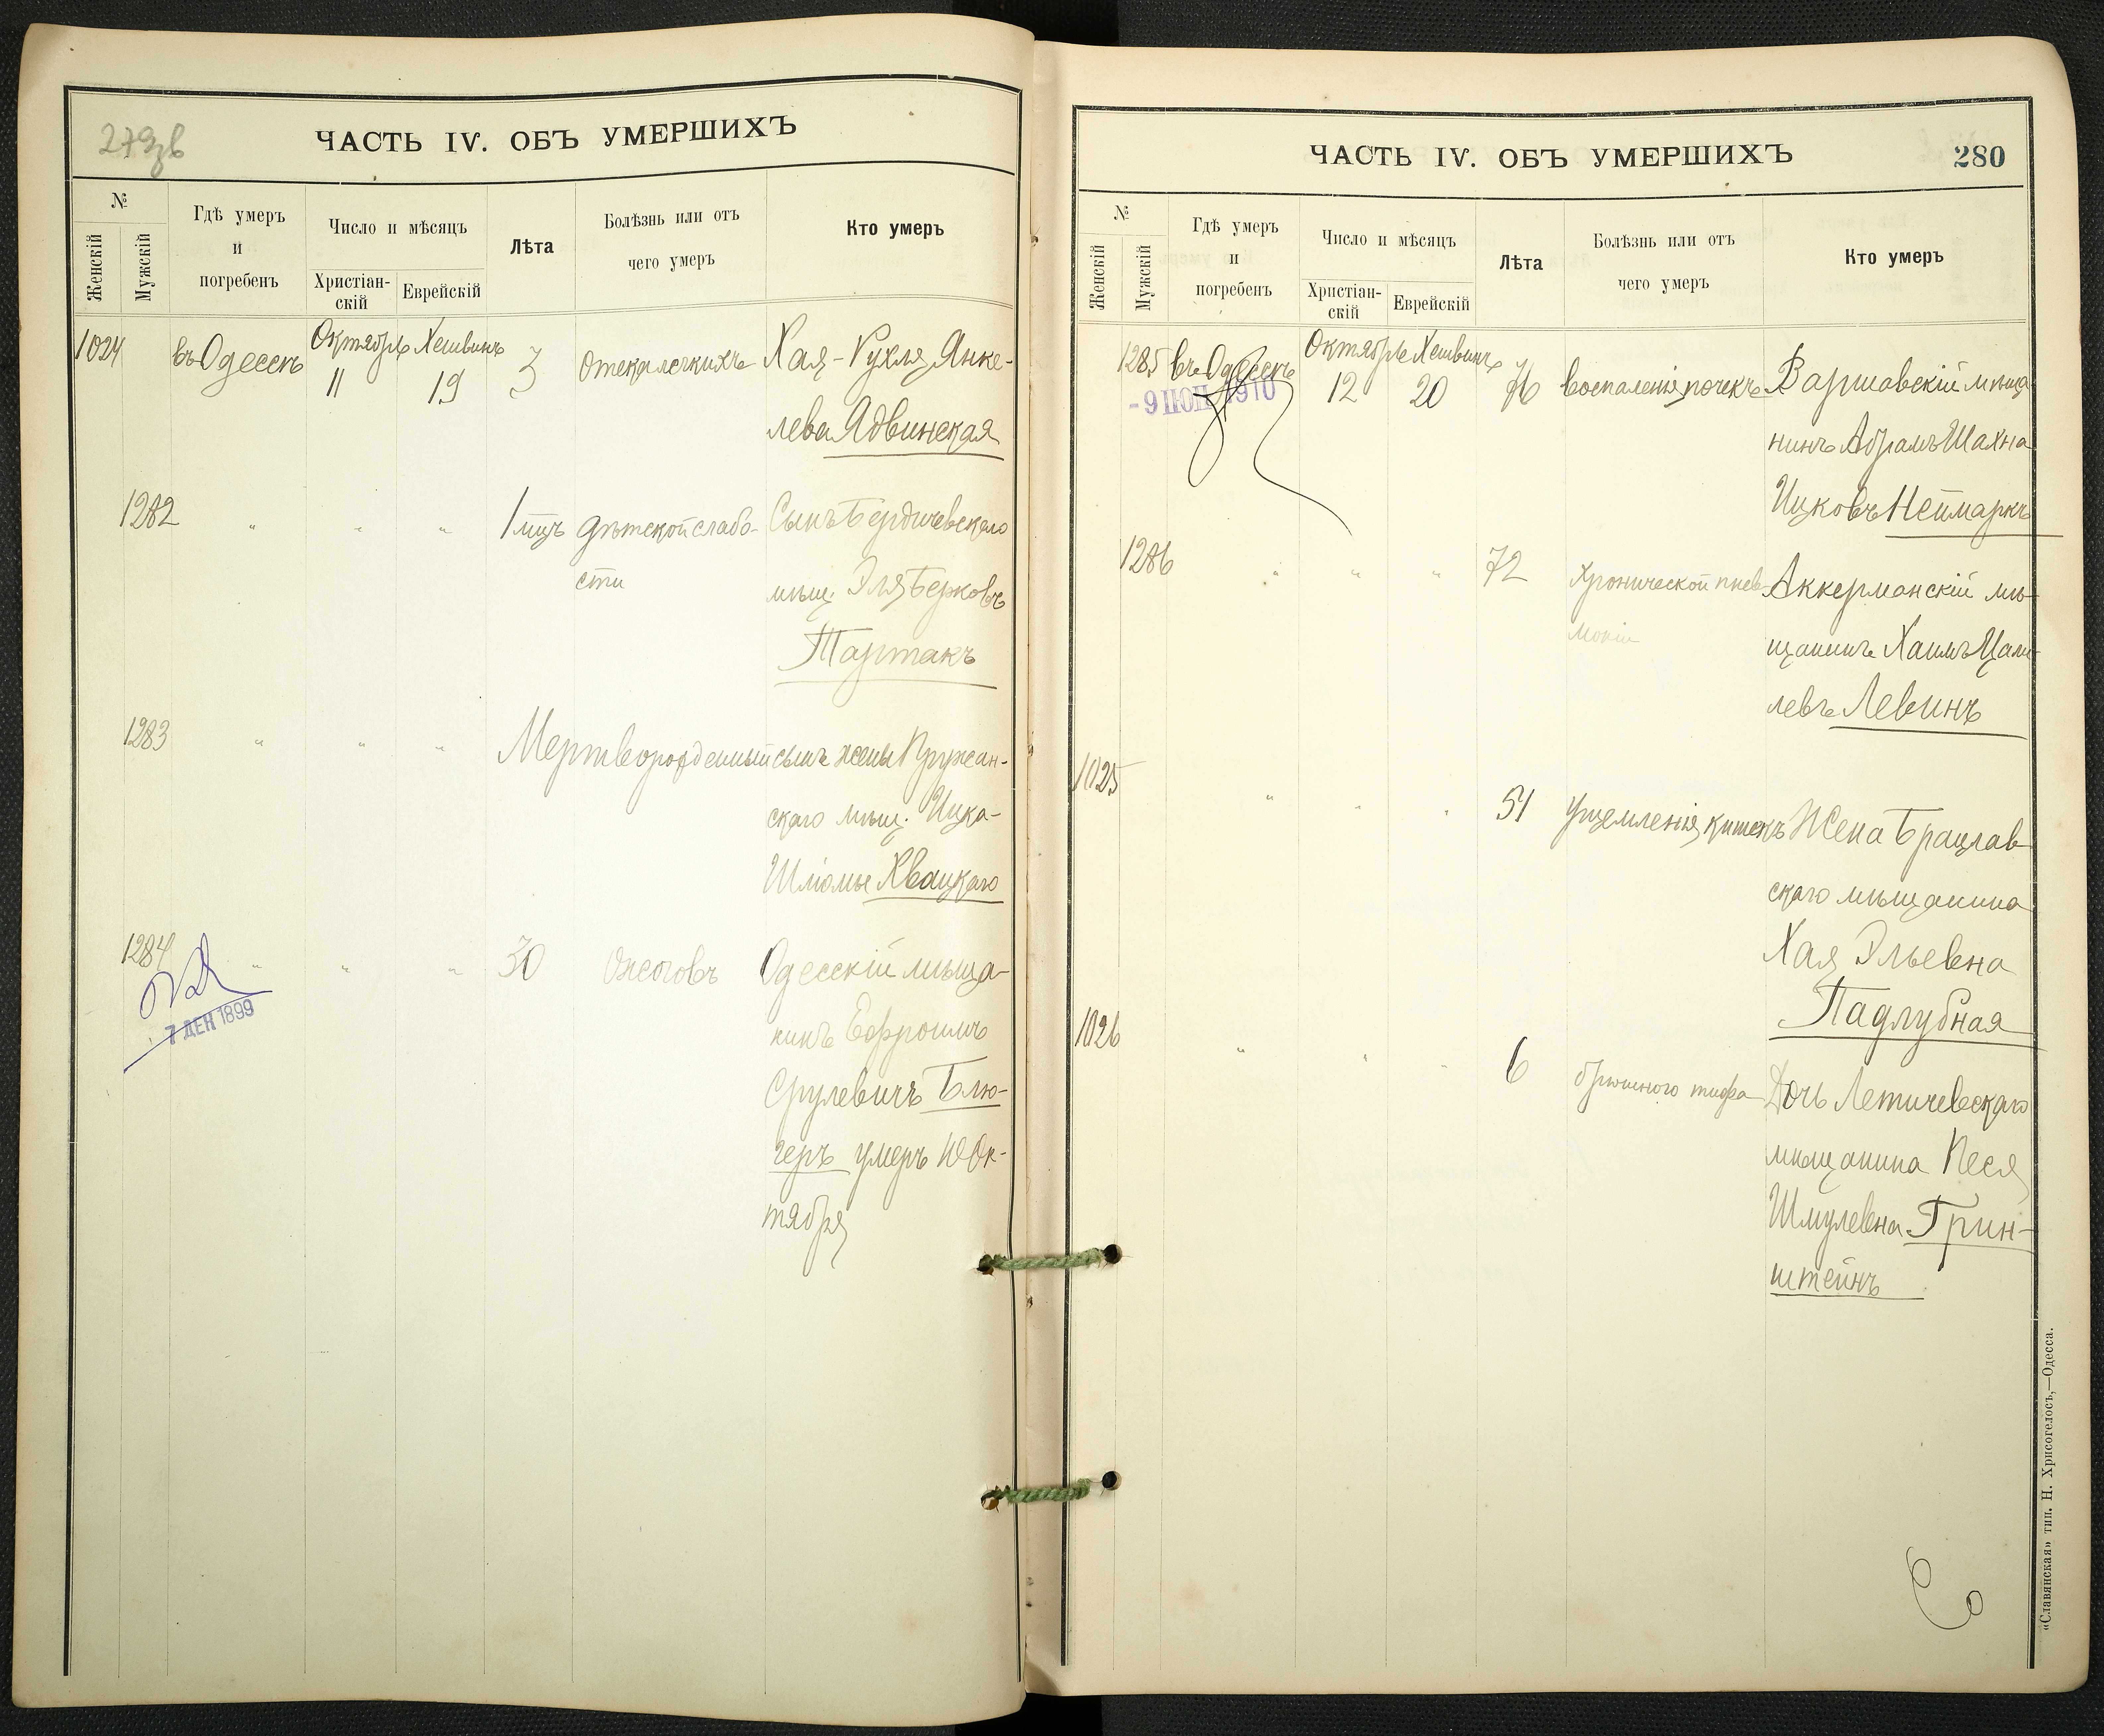 279зв
ЧАСТЬ IV. ОБЪ УМЕРШИХЪ
№
Женскій
Мужскій
Гдѣ умеръ
и
погребенъ
Число и мѣсяцъ
Христіан-
скій
Еврейскій
Лѣта
Болѣзнь или отъ
чего умеръ
Кто умеръ
1024 въ Одессѣ Октябрь 11 Хешвинъ 19 3 Отека легкихъ Хая-Рухля Янке-
лева Ядвинская
1282 " " " 1 мцъ дѣтской слабо- Сынъ Бердичевскаго
сти мѣщ. Эля Берковъ
Тартакъ
1283 " " " Мертворожденный сынъ жены Пружан-
скаго мѣщ. Ицка-
Шліомы Квацкаго
1284 " " " 30 Ожоговъ Одесскій мѣща-
нинъ Ефроимъ
7 ДЕК 1899
Срулевичъ Блю-
геръ умеръ 10 Ок-
тября
ЧАСТЬ IV. ОБЪ УМЕРШИХЪ
280
№
Женскій
Мужскій
Гдѣ умеръ
и
погребенъ
Число и мѣсяцъ
Христіан-
скій
Еврейскій
Лѣта
Болѣзнь или отъ
чего умеръ
Кто умеръ
1285 въ Одессѣ Октябрь 12 Хешвинъ 20 76 воспаленія почекъ Варшавскій мѣща
- 9 ІЮН 1910
нинъ Абрамъ Шахна
Ицковъ Неймаркъ
1286 " " " 72 хронической пнев- Аккерманскій мѣ-
моніи щанинъ Хаимъ Цали-
левъ Левинъ
1025 " " " 51 Ущемленія кишекъ Жена Брацлав
скаго мѣщанина
Хая Эльевна
Падлубная
1026 " " " 6 брюшного тифа Дочь Летичевскаго
мѣщанина Песя
Шмулевна Грин-
штейнъ
«Славянская» тип. Н. Хрисогелосъ,—Одесса.